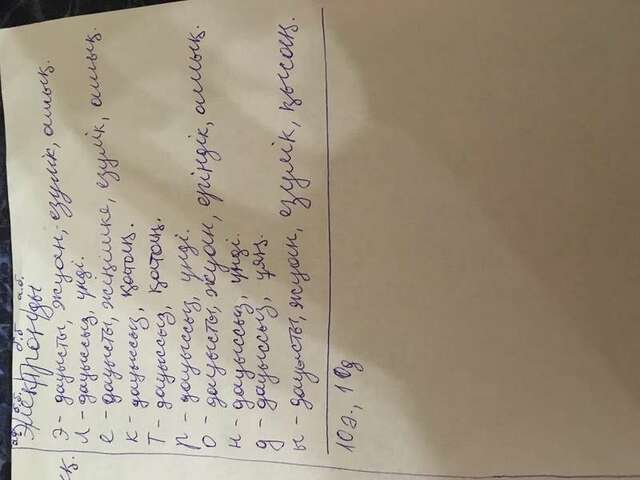 а.б. б.б. б.б а.б.
Электронды
қ.
Э - дауысты, жуан, езулік, ашық.
л - дауыссыз, үнді.
е - дауысты, жіңішке, езулік, ашық.
к - дауыссыз, қатаң.
т - дауыссыз, қатаң.
р - дауыссыз, үнді.
о - дауысты, жуан, еріндік, ашық.
н - дауыссыз, үнді.
д - дауыссыз, ұяң.
ы - дауысты, жуан, езулік, қысаң.
10ә., 10д